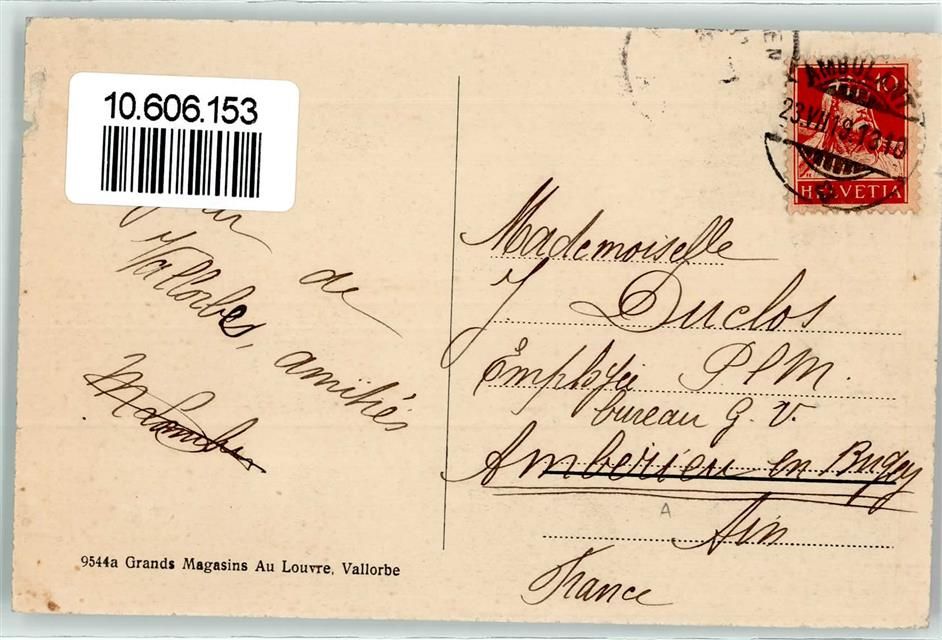 10.606.153
AMBULANT
23.VII.19.1310
10
HELVETIA
de
Vallorbes,
amitiés
Mademoiselle
J. Duclos
Employée P L M.
bureau G. V.
Ambérieu en Bugey
Ain
A
France
9544a Grands Magasins Au Louvre, Vallorbe